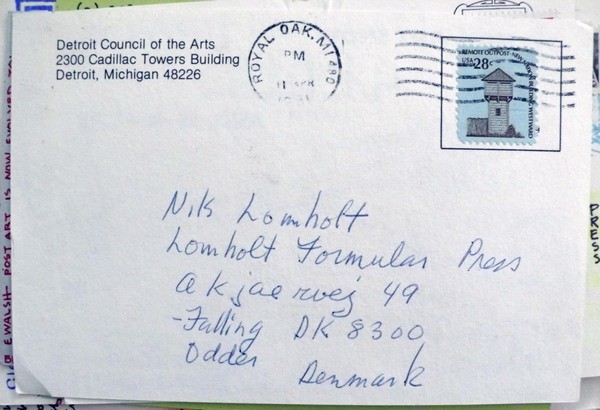 Detroit Council of the Arts
2300 Cadillac Towers Building
Detroit, Michigan 48226
ROYAL OAK, MI 480
PM
11 APR
REMOTE OUTPOST
USA 28c
Nils Lomholt
Lomholt Formular Press
akjaervej 49
-Falling DK 8300
Odder
Denmark
PRESS
EWALSH- POST ART IS NOW EVOLVED TO